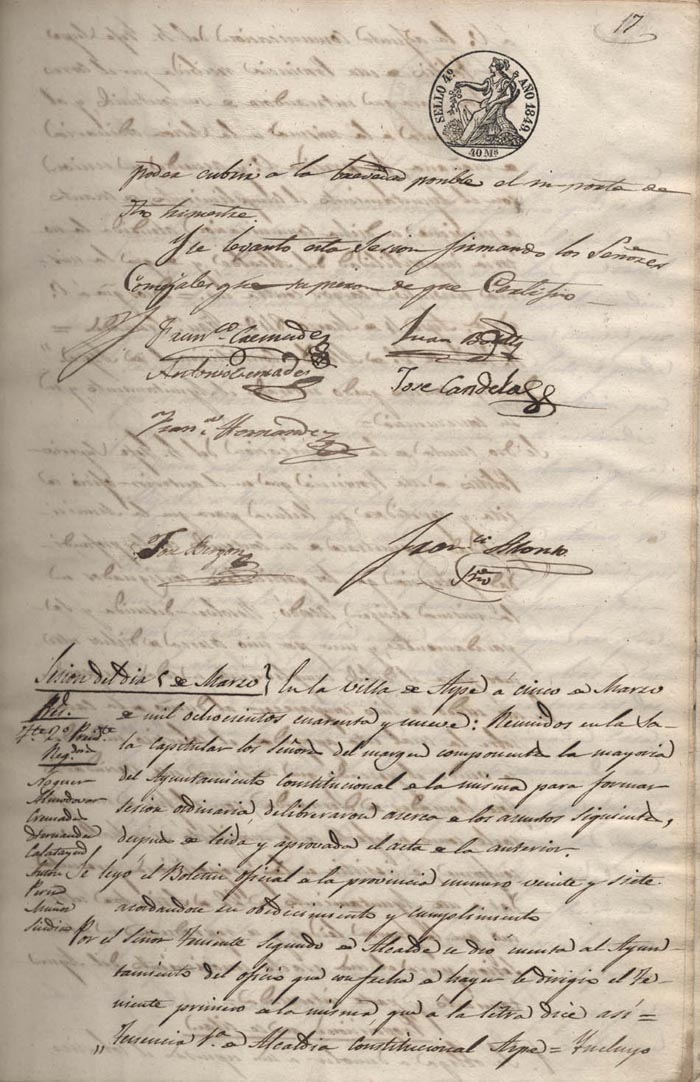 17
SELLO 4º AÑO 1849
40 Ms
poder cubrir a la brevedad posible el importe de
dho trimestre.
Y se levanto esta Sesion firmando los Señores
Concejales que supieron de que Certifico
Franco Cremades
Juan
Antonio Cremades
Jose Candela
Franco Hernandez
Jose
Franco
Srio
Sesion del dia 5 de Marzo
En la villa de Aspe á cinco de Marzo
de mil ochocientos cuarenta y nueve: Reunidos en la Sa-
la capitular los Señores del margen componente la mayoria
del Ayuntamiento Constitucional de la misma para formar
sesion ordinaria deliberaron acerca de los asuntos siguientes,
despues de leida y aprovada el acta de la anterior.
Se leyó el Boletin oficial de la provincia numero veinte y siete
acordandose su obedecimiento y cumplimiento
Por el Señor Teniente segundo de Alcalde se dió cuenta al Ayun-
tamiento del oficio que con fecha de hayer le dirigio el Te-
niente primero de la misma que á la letra dice asi =
„ Tenencia 1ª de Alcaldia Constitucional Aspe = Incluyo
Noguer
Almodovar
Cremades
Hernandez
Calatayud
Anton
Perez
Muñoz
Sindico